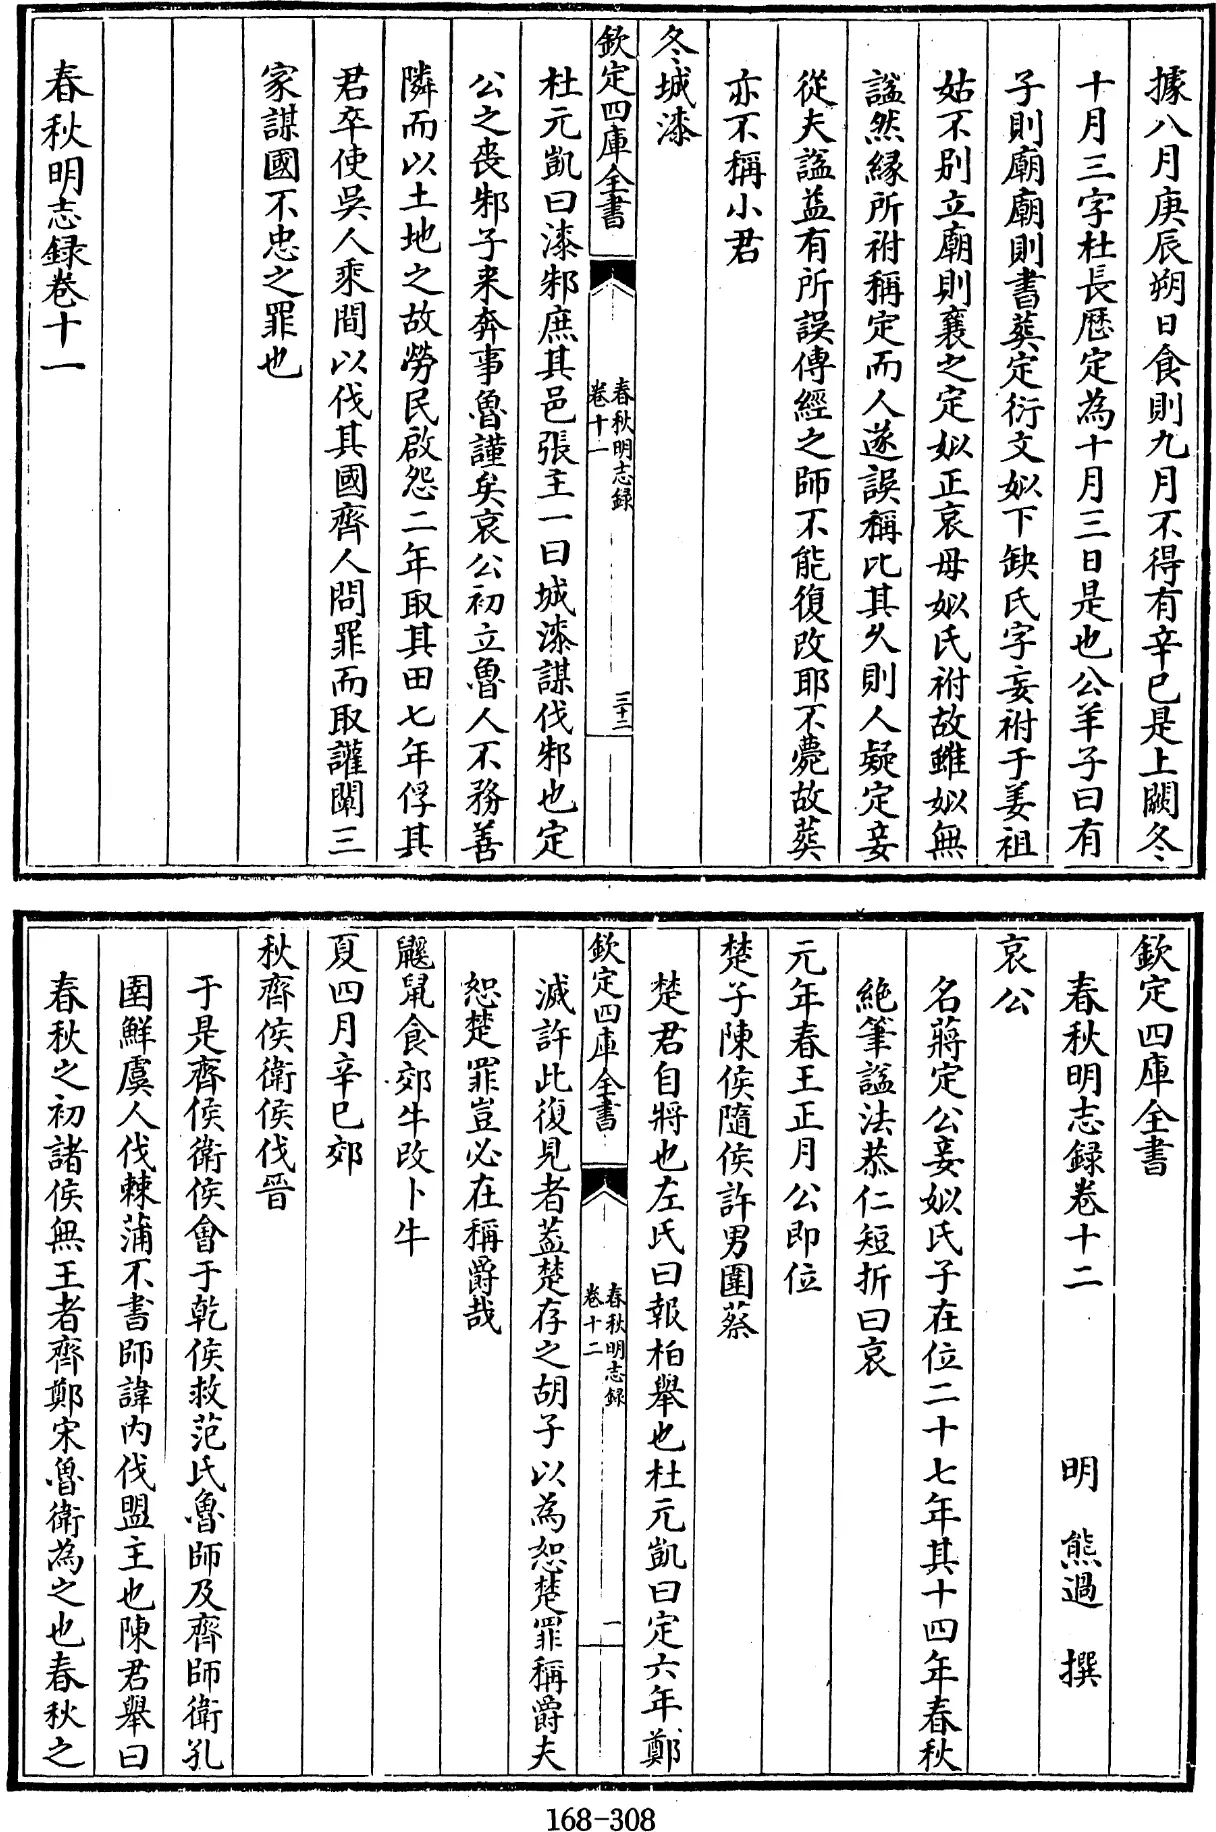 據八月庚辰朔日食則九月不得有辛巳是上闕冬
十月三字杜長厯定為十月三日是也公羊子曰有
子則廟廟則書葬定衍文姒下缺氏字妾祔于姜祖
姑不别立廟則襄之定姒正哀母姒氏祔故雖姒無
諡然縁所祔稱定而人遂誤稱比其久則人疑定妾
從夫諡益有所誤傳經之師不能復改耶不薨故葬
亦不稱小君
冬城漆
欽定四庫全書
春秋明志録
卷十一
三十二
杜元凱曰漆邾庶其邑張主一曰城漆謀伐邾也定
公之喪邾子来奔事魯謹矣哀公初立魯人不務善
隣而以土地之故勞民啟怨二年取其田七年俘其
君卒使吳人乘間以伐其國齊人問罪而取讙闡三
家謀國不忠之罪也
春秋明志録卷十一
欽定四庫全書
春秋明志録卷十二
明 熊過 撰
哀公
名蔣定公妾姒氏子在位二十七年其十四年春秋
絶筆諡法恭仁短折曰哀
元年春王正月公即位
楚子陳侯隨侯許男圍蔡
楚君自將也左氏曰報柏舉也杜元凱曰定六年鄭
欽定四庫全書
春秋明志録
卷十二
一
滅許此復見者蓋楚存之胡子以為恕楚罪稱爵夫
恕楚罪豈必在稱爵哉
鼷鼠食郊牛改卜牛
夏四月辛巳郊
秋齊侯衛侯伐晉
于是齊侯衛侯會于乾侯救范氏魯師及齊師衛孔
圉鮮虞人伐棘蒲不書師諱内伐盟主也陳君舉曰
春秋之初諸侯無王者齊鄭宋魯衛為之也春秋之
168-308